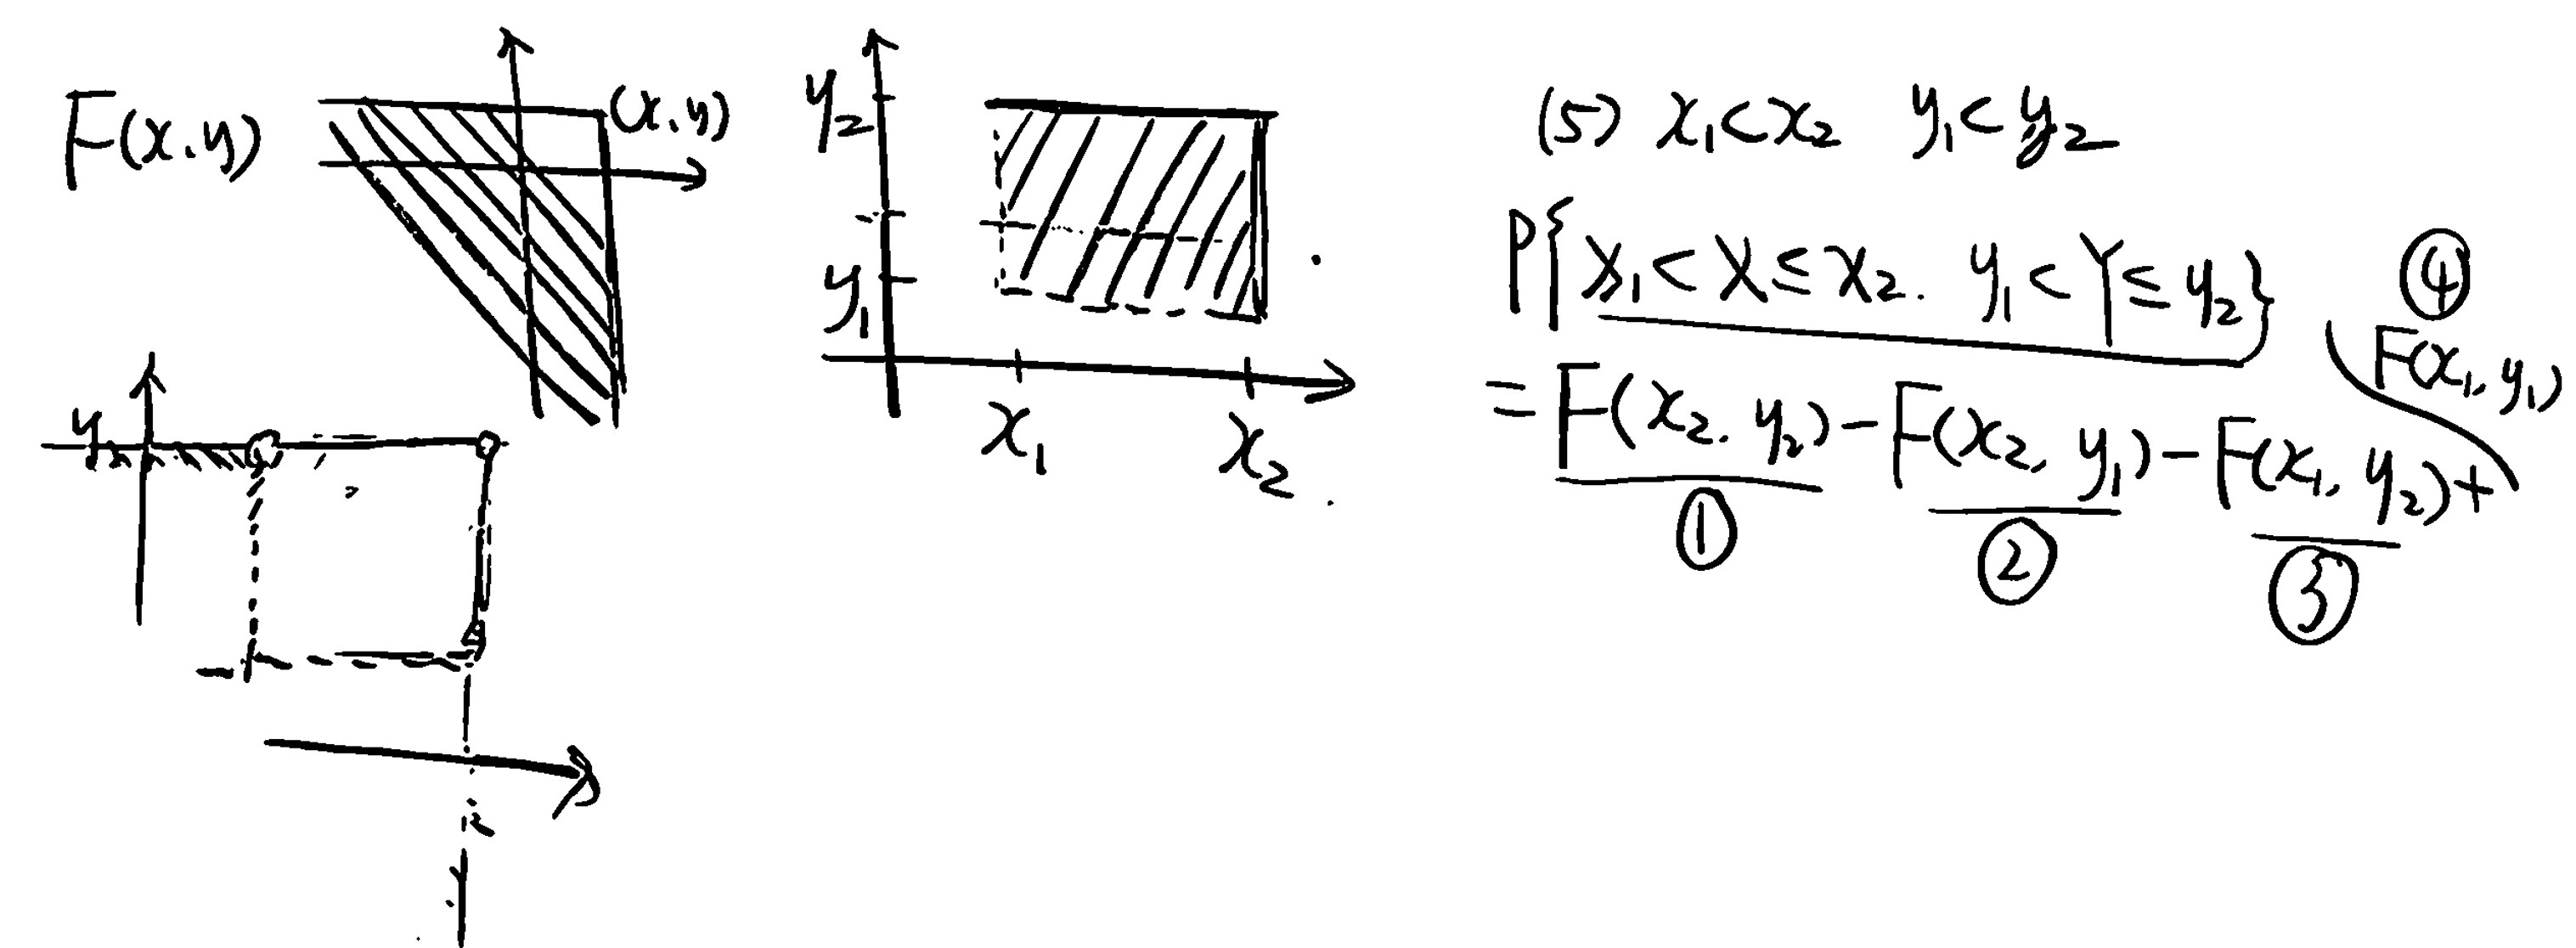 F(x.y)
(x.y)
y₂
y₁
x₁ x₂
y
(5) x₁<x₂ y₁<y₂
P{x₁<X≤x₂. y₁<Y≤y₂}
=F(x₂.y₂)-F(x₂,y₁)-F(x₁,y₂)+
F(x₁,y₁)
① ② ③
④